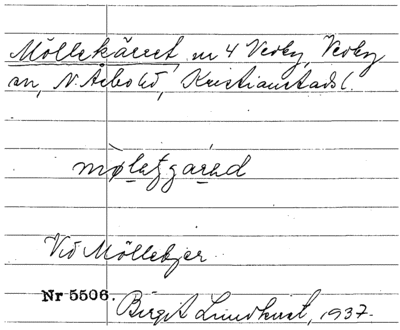 Möllekärret, nr 4 Verby, Verby
sn, N. Åsbo hd, Kristianstads l.
mølejgarəd
Vid Möllekjer
Nr 5506.
Birgit Lundkvist, 1937.